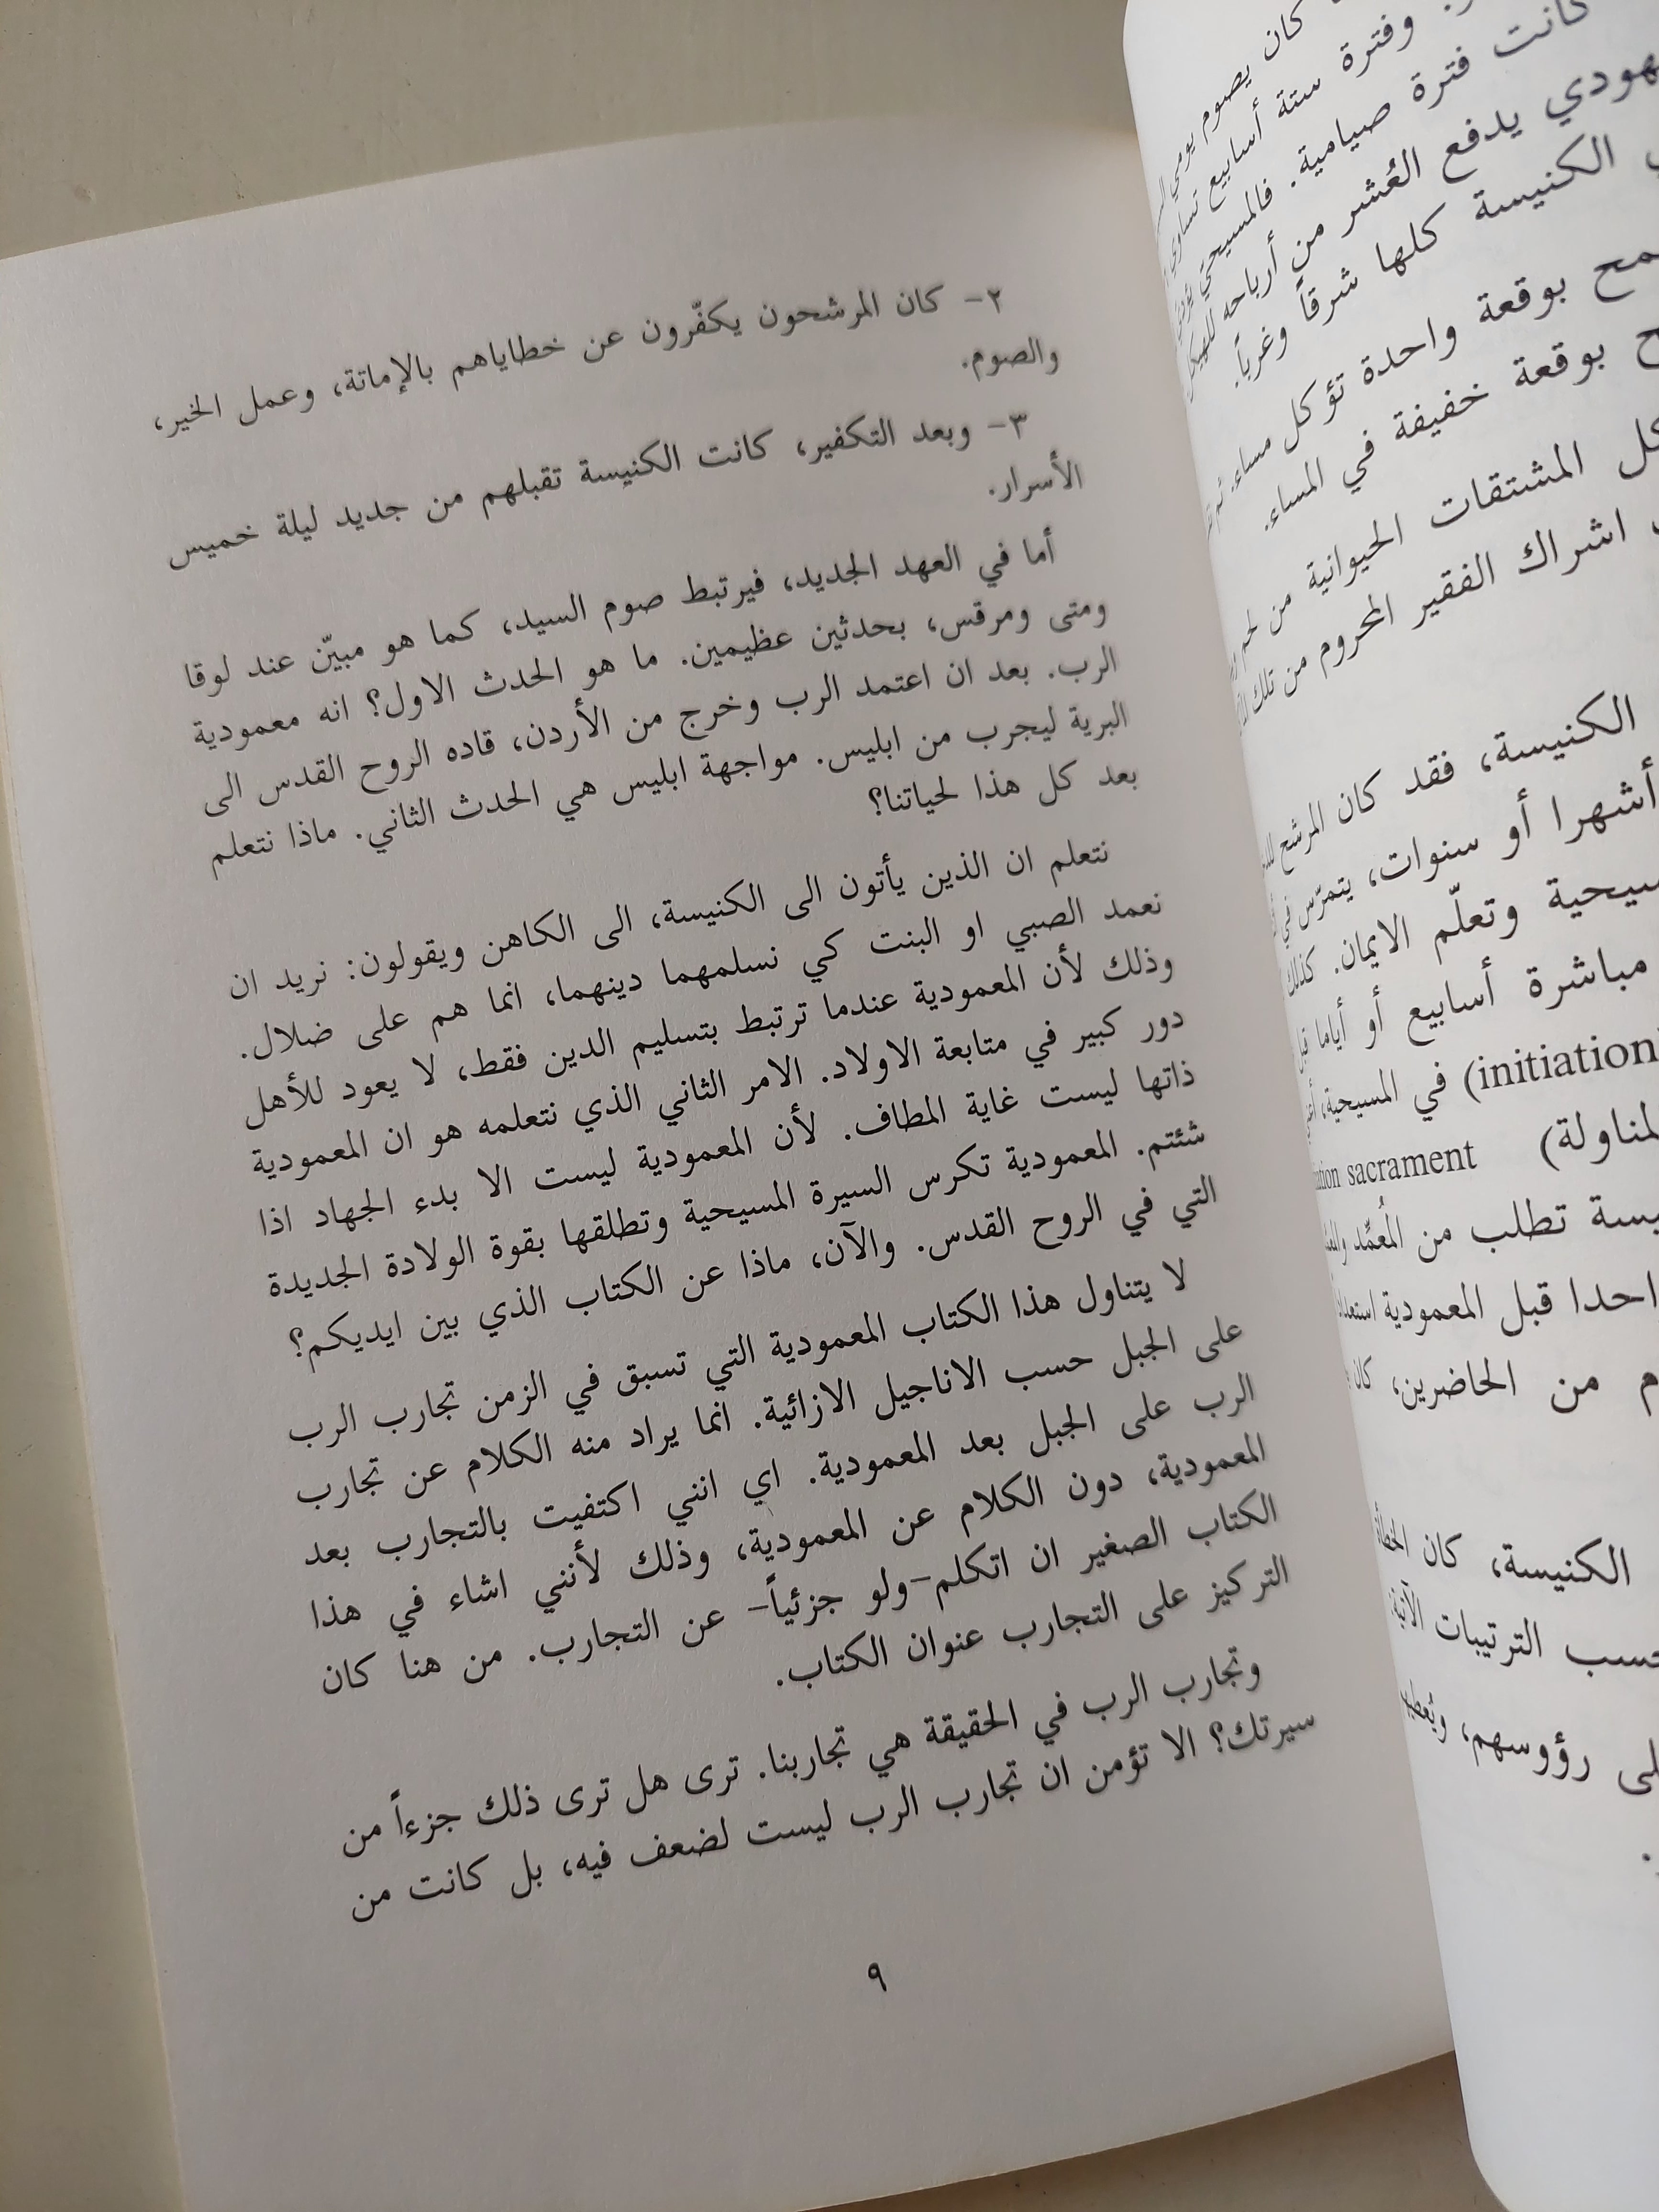 كان يصوم يومي
وفترة ستة أسابيع تساوي
كانت فترة صيامية. فالمسيحي
يدفع العُشر من أرباحه للهيكل
الكنيسة كلها شرقاً وغرباً.
بوقعة واحدة تؤكل مساء.
بوقعة خفيفة في المساء.
المشتقات الحيوانية من لحم
اشراك الفقير المحروم من تلك
الكنيسة، فقد كان المرشح
أشهرا أو سنوات، يتمرّس في
وتعلّم الايمان. كذلك
مباشرة أسابيع أو أياما
(initiation في المسيحية،
sacrament (
تطلب من المُعمِّد
قبل المعمودية
من الحاضرين، كان
الكنيسة، كان
حسب الترتيبات الآتية:
رؤوسهم،
٢- كان المرشحون يكفّرون عن خطاياهم بالإماتة، وعمل الخير،
والصوم.
٣- وبعد التكفير، كانت الكنيسة تقبلهم من جديد ليلة خميس
الأسرار.
أما في العهد الجديد، فيرتبط صوم السيد، كما هو مبيّن عند لوقا
ومتى ومرقس، بحدثين عظيمين. ما هو الحدث الاول؟ انه معمودية
الرب. بعد ان اعتمد الرب وخرج من الأردن، قاده الروح القدس الى
البرية ليجرب من ابليس. مواجهة ابليس هي الحدث الثاني. ماذا نتعلم
بعد كل هذا لحياتنا؟
نتعلم ان الذين يأتون الى الكنيسة، الى الكاهن ويقولون: نريد ان
نعمد الصبي او البنت كي نسلمهما دينهما، انما هم على ضلال.
وذلك لأن المعمودية عندما ترتبط بتسليم الدين فقط، لا يعود للأهل
دور كبير في متابعة الاولاد. الامر الثاني الذي نتعلمه هو ان المعمودية
ذاتها ليست غاية المطاف. لأن المعمودية ليست الا بدء الجهاد اذا
شئتم. المعمودية تكرس السيرة المسيحية وتطلقها بقوة الولادة الجديدة
التي في الروح القدس. والآن، ماذا عن الكتاب الذي بين ايديكم؟
لا يتناول هذا الكتاب المعمودية التي تسبق في الزمن تجارب الرب
على الجبل حسب الاناجيل الازائية. انما يراد منه الكلام عن تجارب
الرب على الجبل بعد المعمودية. اي انني اكتفيت بالتجارب بعد
المعمودية، دون الكلام عن المعمودية، وذلك لأنني اشاء في هذا
الكتاب الصغير ان اتكلم-ولو جزئياً- عن التجارب. من هنا كان
التركيز على التجارب عنوان الكتاب.
وتجارب الرب في الحقيقة هي تجاربنا. ترى هل ترى ذلك جزءاً من
سيرتك؟ الا تؤمن ان تجارب الرب ليست لضعف فيه، بل كانت من
٩